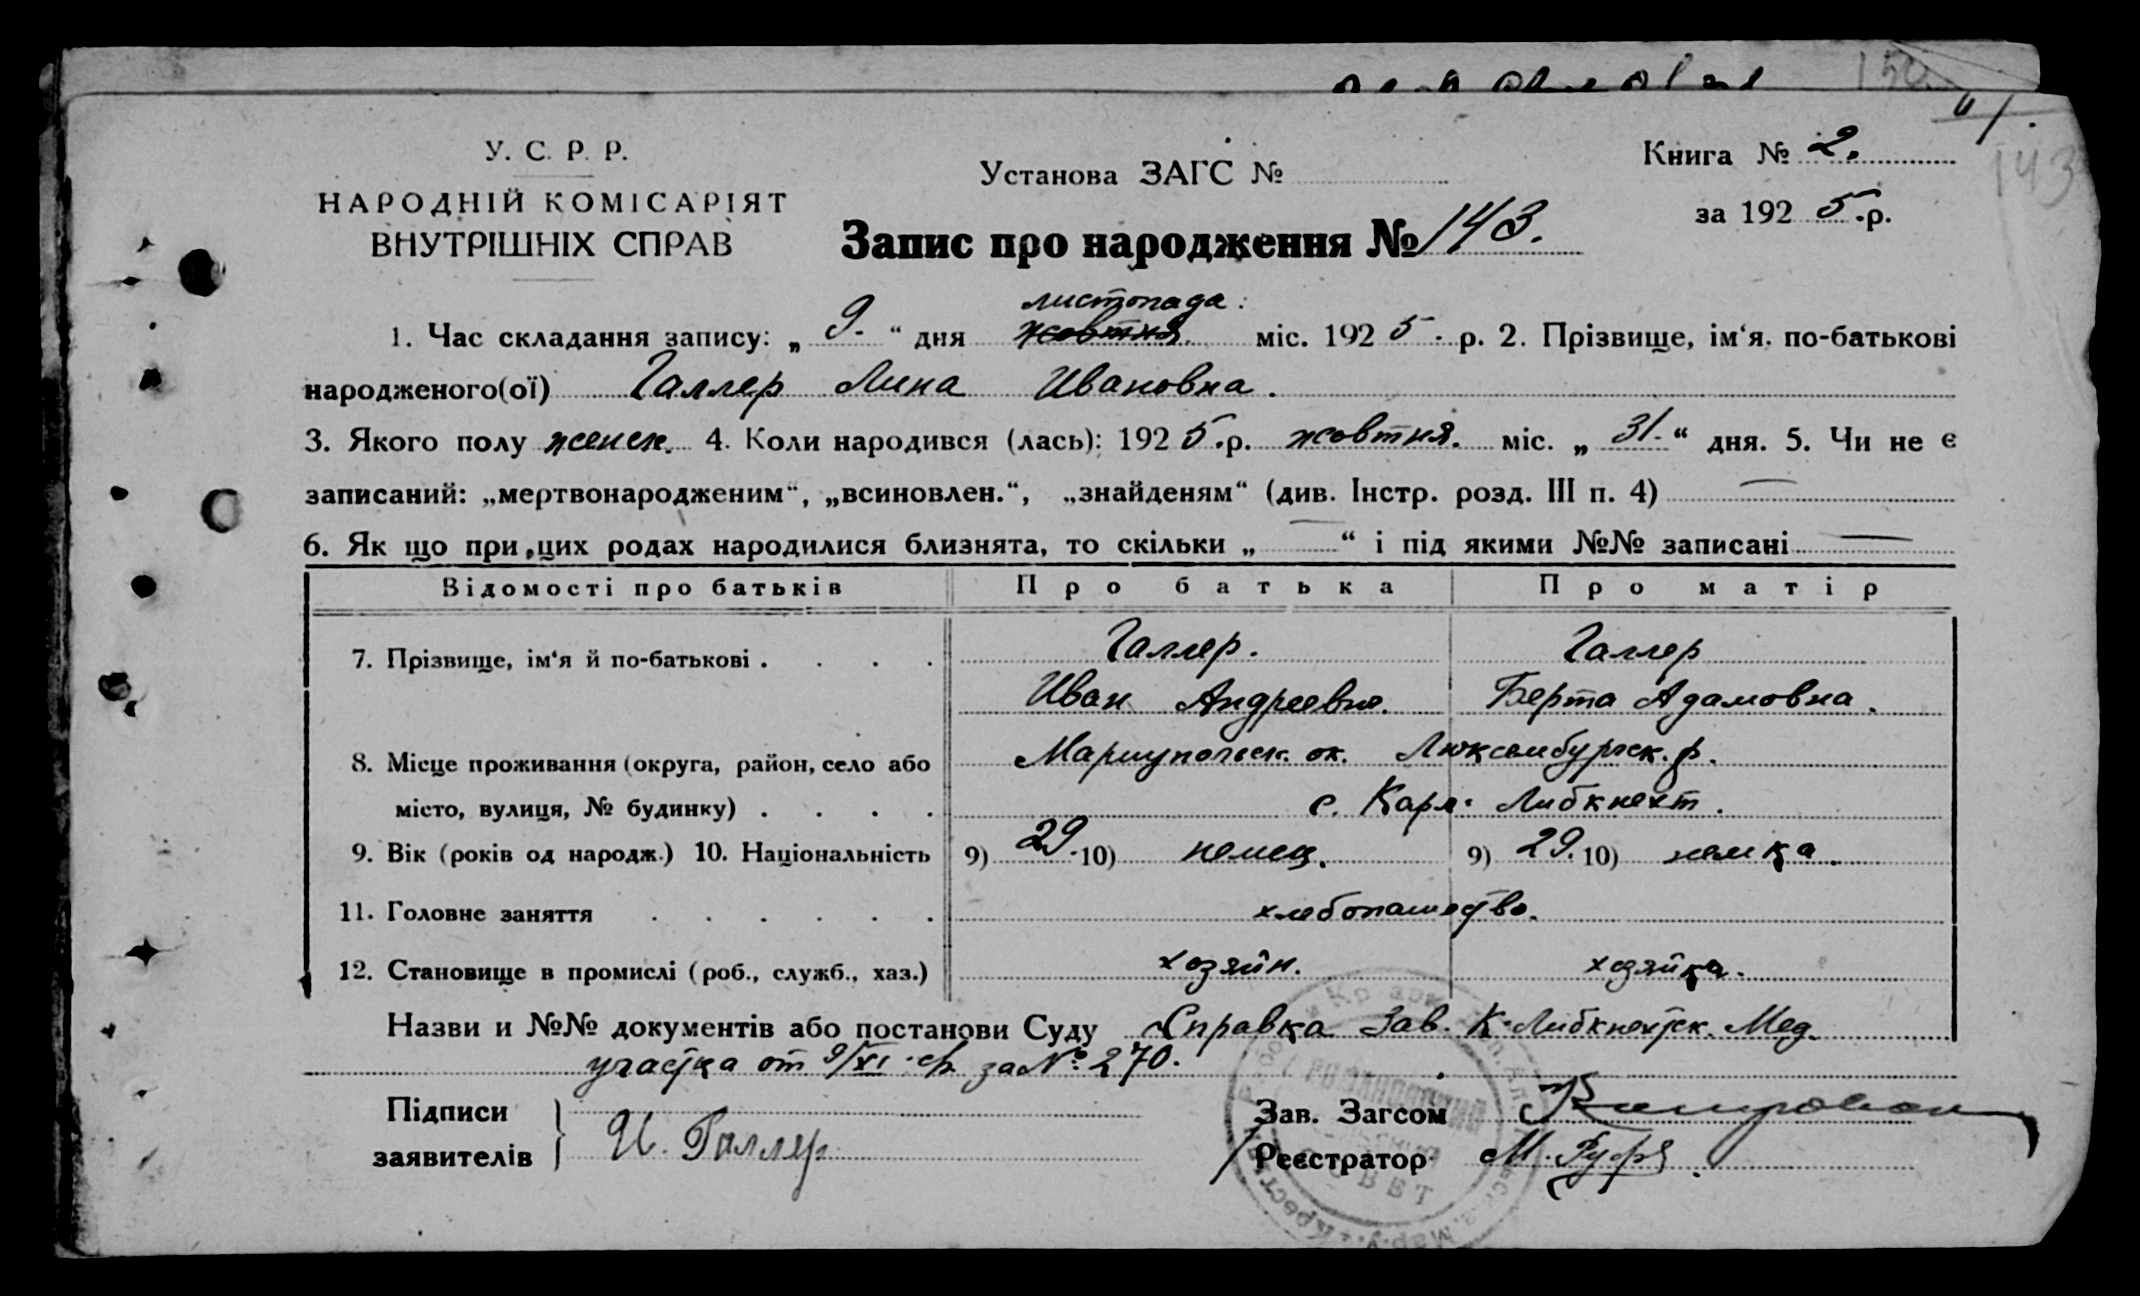 143
У. С. Р. Р.
НАРОДНІЙ КОМІСАРІЯТ
ВНУТРІШНІХ СПРАВ
Установа ЗАГС №
Книга № 2.
за 192 5 р.
Запис про народження № 143.
листопада
1. Час складання запису: „ 9. “ дня жовтня міс. 192 5 р. 2. Прізвище, ім‘я, по-батькові
народженого(ої) Галлер Лина Ивановна.
3. Якого полу женск. 4. Коли народився (лась): 192 5 р. жовтня. міс. „ 31. “ дня. 5. Чи не є
записаний: „мертвонародженим“, „всиновлен.“, „знайденям“ (див. Інстр. розд. III п. 4) —
6. Як що при цих родах народилися близнята, то скільки „ — “ і під якими №№ записані —
Відомості про батьків Про батька Про матір
7. Прізвище, ім‘я й по-батькові . . . . Галлер. Галлер
Иван Андреевич. Берта Адамовна.
8. Місце проживання (округа, район, село або Мариупольск. ок. Люксембургск. р.
місто, вулиця, № будинку) . . . . с. Карл-Либкнехт.
9. Вік (років од народж.) 10. Національність 9) 29. 10) немец. 9) 29. 10) немка.
11. Головне заняття . . . . . . хлебопашество.
12. Становище в промислі (роб., служб., хаз.) хозяин. хозяйка.
Назви и №№ документів або постанови Суду Справка Зав. К-Либкнехтск. Мед.
участка от 9/XI за № 270.
Підписи
заявителів } И. Галлер
Зав. Загсом
Реєстратор М.